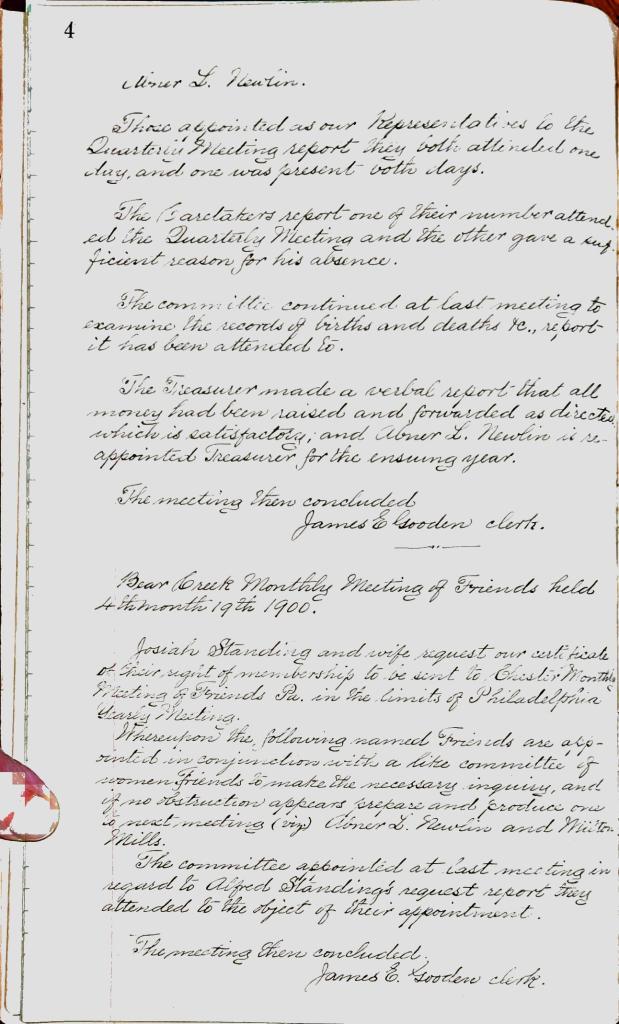 4
Abner L. Newlin.
Those appointed as our Representatives to the
Quarterly Meeting report they both attended one
day, and one was present both days.
The Caretakers report one of their number attend-
ed the Quarterly Meeting and the other gave a suf-
ficient reason for his absence.
The committee continued at last meeting to
examine the records of births and deaths &c., report
it has been attended to.
The Treasurer made a verbal report that all
money had been raised and forwarded as directed
which is satisfactory; and Abner L. Newlin is re-
appointed Treasurer for the ensuing year.
The meeting then concluded
James E Gooden clerk.
Bear Creek Monthly Meeting of Friends held
4th month 19th 1900.
Josiah Standing and wife request our certificate
of their right of membership to be sent to Chester Monthly
Meeting of Friends Pa. in the limits of Philadelphia
Yearly Meeting.
Whereupon the following named Friends are app-
ointed in conjunction with a like committee of
women friends to make the necessary inquiry, and
if no obstruction appears prepare and produce one
to next meeting (viz) Abner L. Newlin and Milton
Mills.
The committee appointed at last meeting in
regard to Alfred Standing's request report they
attended to the object of their appointment.
The meeting then concluded.
James E. Gooden clerk.